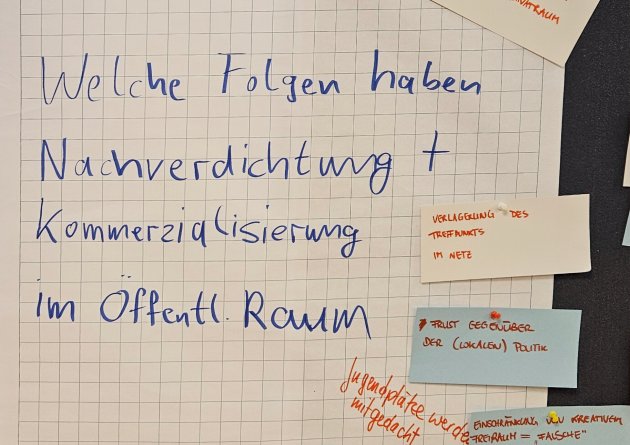 Welche Folgen haben
Nachverdichtung +
Kommerzialisierung
im Öffentl. Raum
VERLAGERUNG DES
TREFFPUNKTS
IM NETZ
FRUST GEGENÜBER
DER (LOKALEN) POLITIK
Jugendplätze werde
mitgedacht
EINSCHRÄNKUNG VON KREATIVEM
FREIRAUM = „FALSCHE"